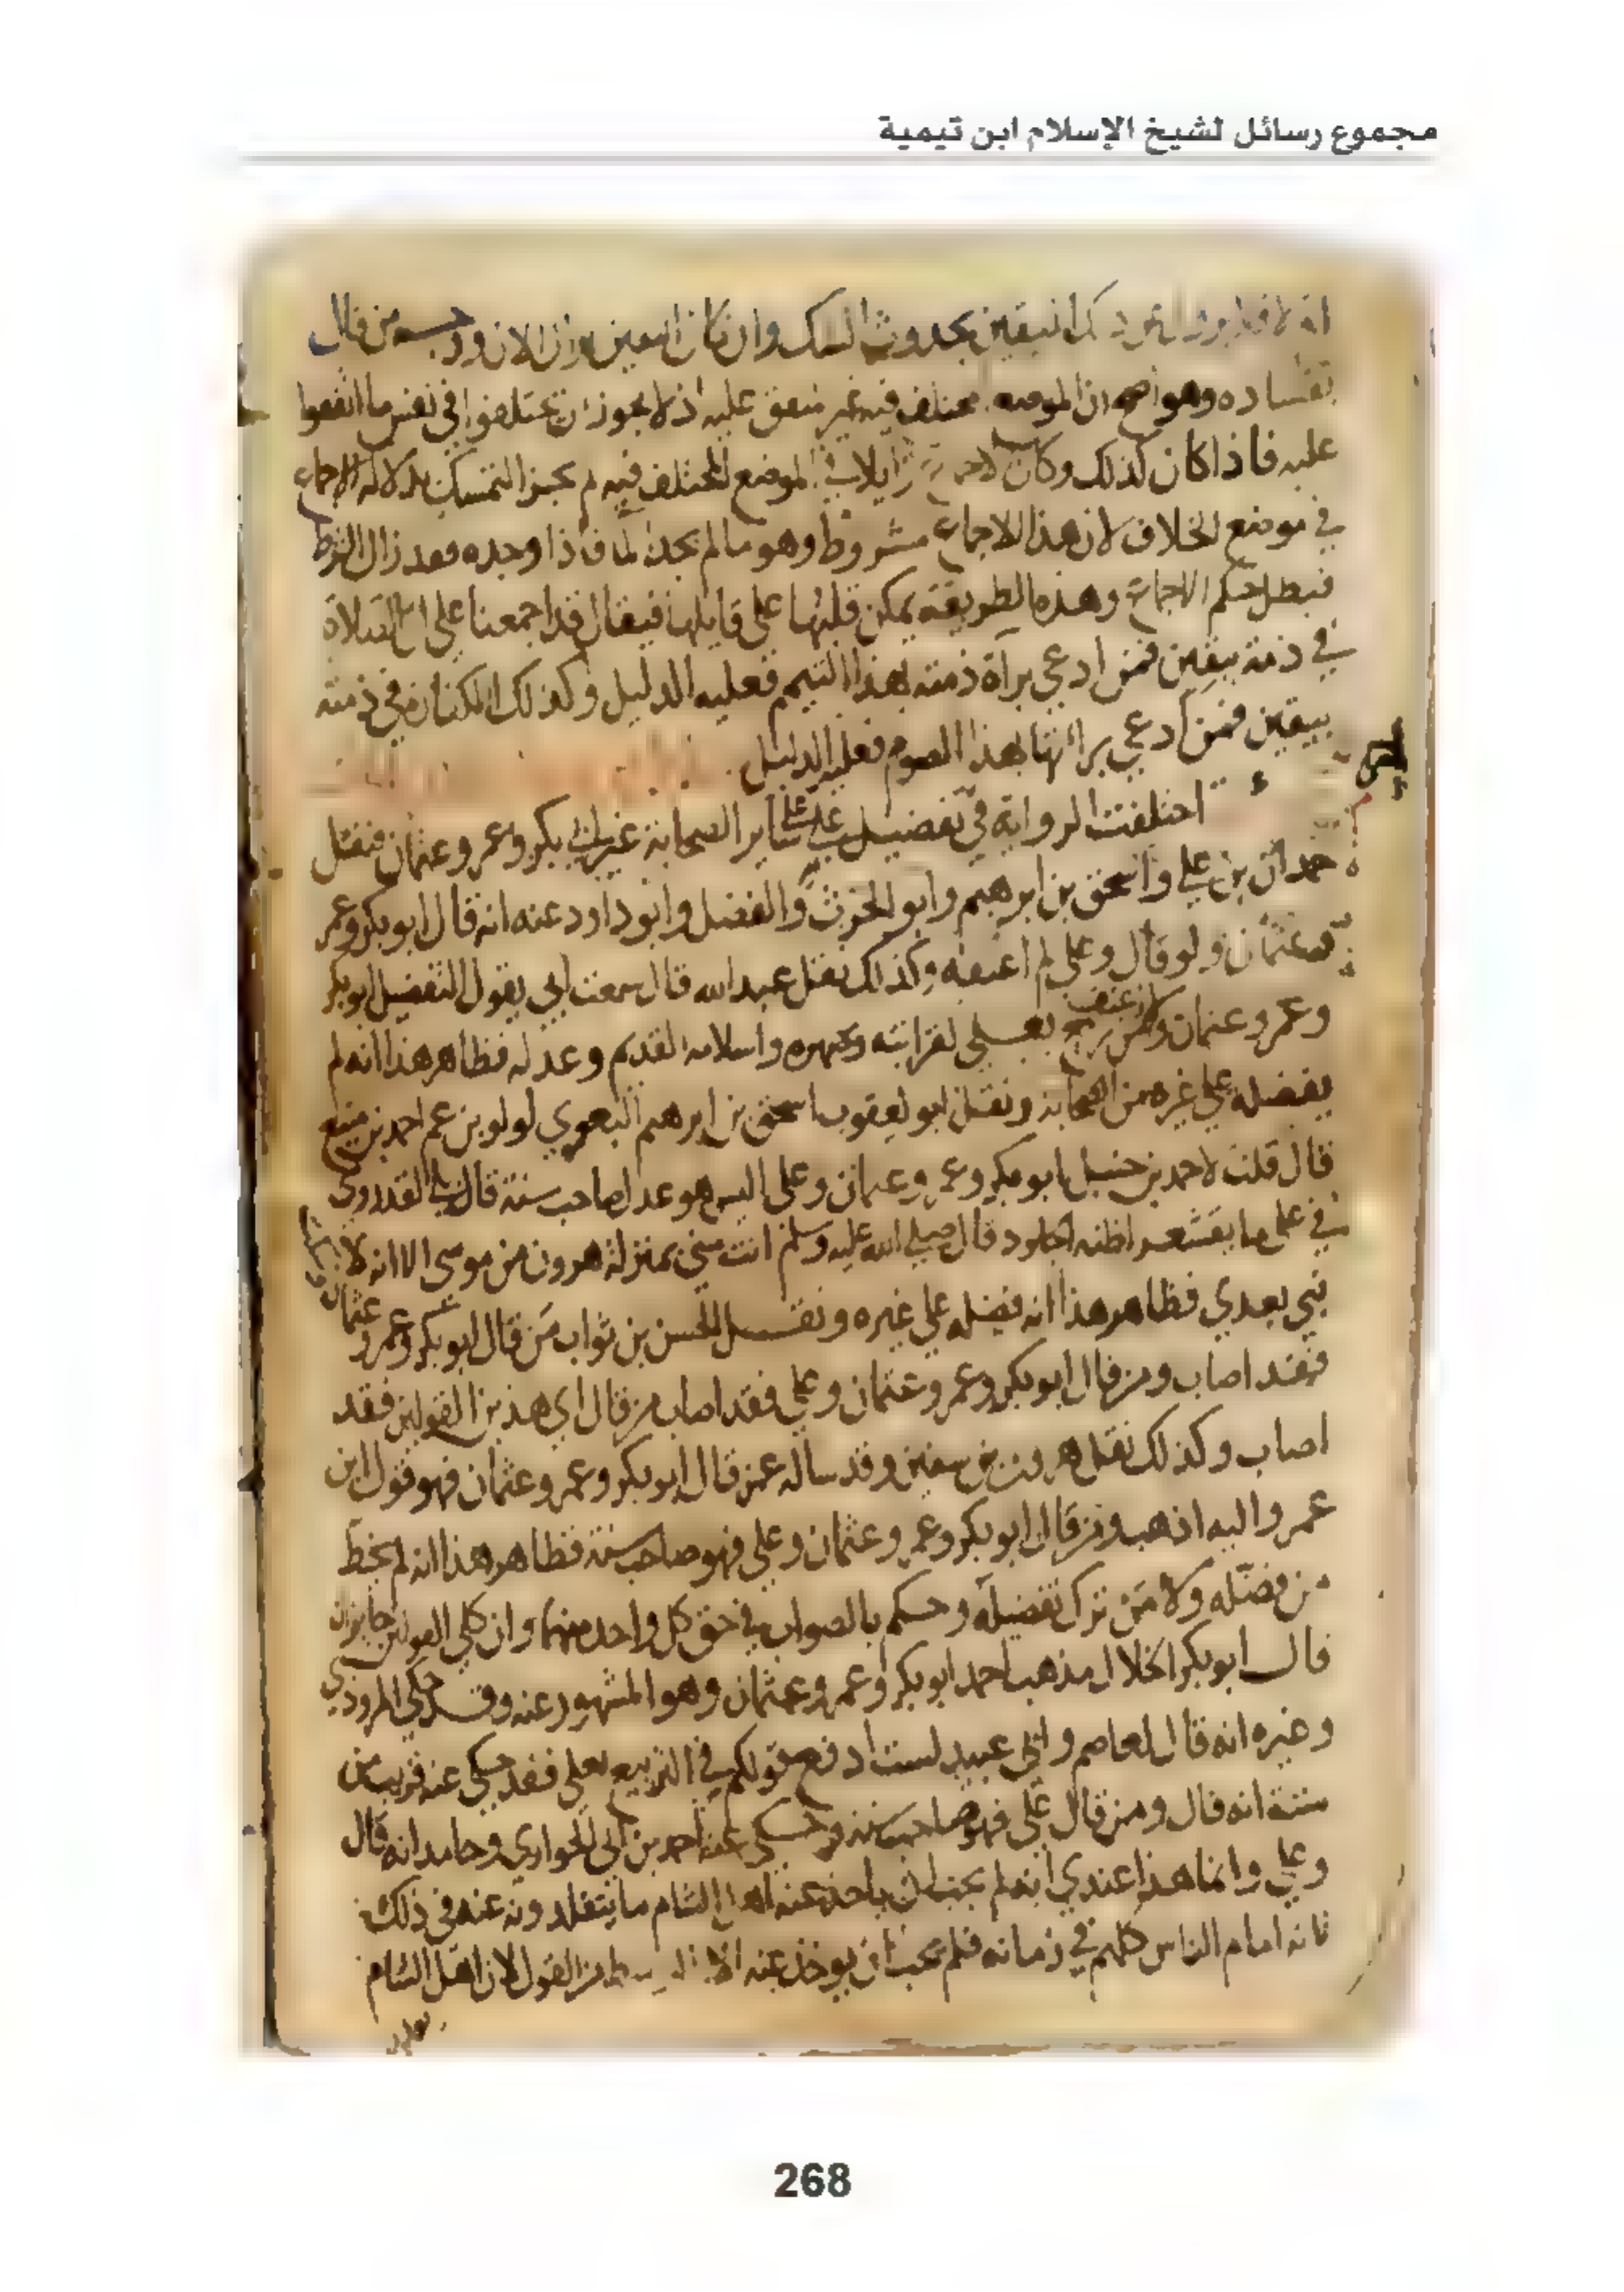 مجموع رسائل لشيخ الإسلام ابن تيمية
بحدوث الشك وان كان من قال
بفساده وهو مختلف فيه غير متفق عليه اذ لا يجوز ان يختلفوا في نفس ما اتفقوا
عليه فاذا كان كذلك وكان الموضع المختلف فيه لم يجز التمسك بدلالة الاجماع
في موضع الخلاف لان هذا الاجماع مشروط وهو ما لم يجد الما فاذا وجده فقد زال الشرط
فبطل حكم الاجماع وهذه الطريقة يمكن قلبها على قايلها فيقال قد اجمعنا على ان الصلاة
في ذمته بيقين فمن ادعى برآة ذمته بهذا التيمم فعليه الدليل وكذلك الكفارة في ذمته
بيقين فمن ادعى برائتها بهذا الصوم فعليه الدليل
اختلفت الرواية في تفضيل علي على ساير الصحابة غير ابي بكر وعمر وعثمان فنقل
حمدان بن علي واسحق بن ابرهيم وابو الحرث والفضل وابو داود عنه انه قال ابو بكر وعمر
وعثمان ولو قال وعلي لم اعنفه وكذلك نقل عبد الله قال سمعت ابي يقول التفضيل ابو بكر
وعمر وعثمان ومن ربع بعلي لقرابته وصهره واسلامه القديم وعدله فظاهر هذا انه لم
يفضله على غيره من الصحابة ونقل ابو يعقوب اسحق بن ابرهيم البغوي لولو بن عم احمد بن منيع
قال قلت لاحمد بن حنبل ابو بكر وعمر وعثمان وعلى اليس هو عدل صاحب سنة قال بلى لقد روي
في علي ما يقشعر اظنه الجلود قال صلى الله عليه وسلم انت مني بمنزلة هرون من موسى الا انه لا
نبي بعدي فظاهر هذا انه فضله على غيره ونقل الحسن بن ثواب من قال ابو بكر وعمر و
عثمان
فقد اصاب ومن قال ابو بكر وعمر وعثمان وعلي فقد اصاب من قال اي هذين القولين فقد
اصاب وكذلك نقل هرون بن سفين وقد ساله عمن قال ابو بكر وعمر وعثمان فهو قول ابن
عمر واليه اذهب ومن قال ابو بكر وعمر وعثمان وعلي فهو صاحب سنة فظاهر هذا انه لم يخط
من فضله ولا من ترك تفضيله وحكم بالصواب في حق كل واحد منهما وان كلي القولين جايزان
قال ابو بكر الخلال مذهب احمد ابو بكر وعمر وعثمان وهو المشهور عنه وقد حكى المروذي
وغيره انه قال لعاصم وابي عبيد لست ادفع قولكم في التربيع بعلي فقد حكى عنه قريب من
ستة انه قال ومن قال علي فهو صاحب سنة وحكى عنه احمد بن ابي الحواري وحامد انه قال
وعلي وانما هذا عندي انه لم يحب ان ياخذ عنه اهل الشام ما يتقلدونه عنه في ذلك
فانه امام الناس كلهم في زمانه فلم يحب ان يوخذ عنه الا من القول لان اهل الشام
268